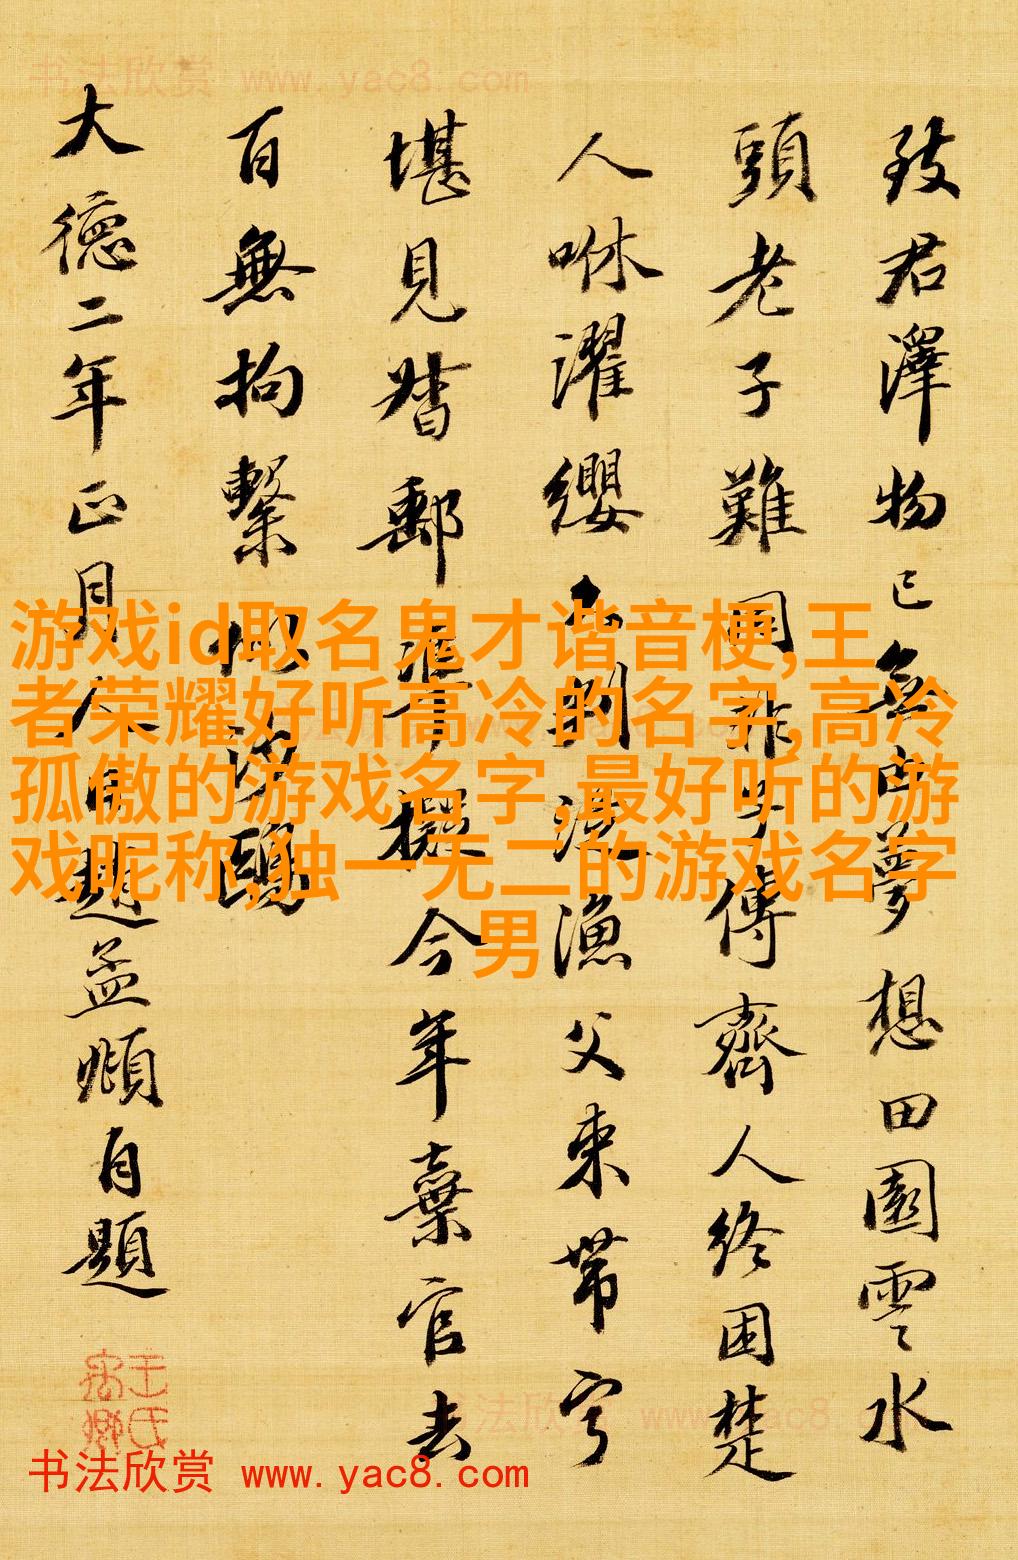 書法欣赏 www.yac8.com
致君澤物已無由夢想田園雲水
頭老子難同非子傳齊人終困楚
人咻濯纓久判從漁父束帶寧
堪見督郵準擬今年棄官去
百無拘繫似沙鷗
大德二年正月人日趙孟頫自題
游戏id取名鬼才谐音梗,王
者荣耀好听高冷的名字,高冷
孤傲的游戏名字,最好听的游
戏昵称,独一无二的游戏名字
男
书法欣赏 www.yac8.com